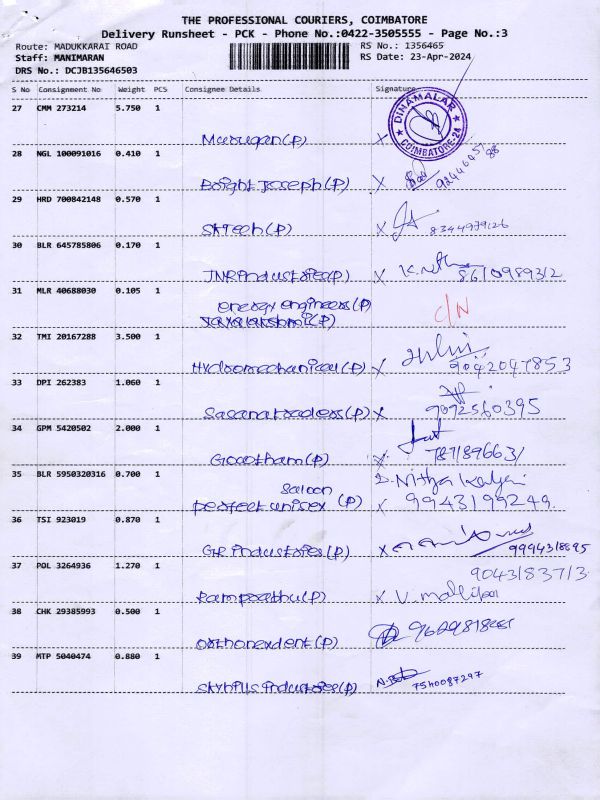 THE PROFESSIONAL COURIERS, COIMBATORE
Delivery Runsheet - PCK - Phone No.:0422-3505555 - Page No.:3
Route: MADUKKARAI ROAD RS No.: 1356465
Staff: MANIMARAN RS Date: 23-Apr-2024
DRS No.: DCJB135646503
S No Consignment No Weight PCS Consignee Details Signature
27 CMM 273214 5.750 1
DINAMALAR
COIMBATORE-24
Murugan(P) X
28 NGL 100091016 0.410 1
Boight Joseph(P) X
29 HRD 700842148 0.570 1
SKTech(P) X 8344979126
30 BLR 645785806 0.170 1
JNR industries(P) X 8610989312
31 MLR 40688030 0.105 1
energy engineers(P) C/N
32 TMI 20167288 3.500 1
Hydromechanical(P) X 9042047853
33 DPI 262383 1.060 1
Sasana traders(P) X 9092560395
34 GPM 5420502 2.000 1
Gowtham(P) X
35 BLR 5950320316 0.700 1
Saloon
perfect unisex (P) X 9943199249
36 TSI 923019 0.870 1
GR industries(P) X
37 POL 3264936 1.270 1
9043183713
Ramprabhu(P) X
38 CHK 29385993 0.500 1
orthonexdent(P)
39 MTP 5040474 0.880 1
industries(P) 7540087297